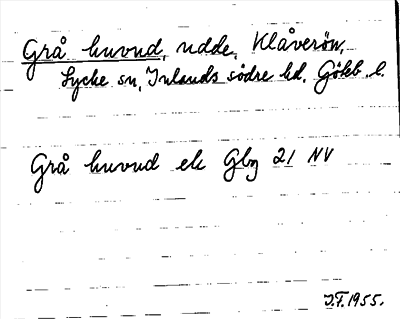 Grå huvud, udde, Klåverön,
Lycke sn, Inlands södre hd, Göteb. l.
Grå huvud ek Gbg 21 NV
I.F. 1955.